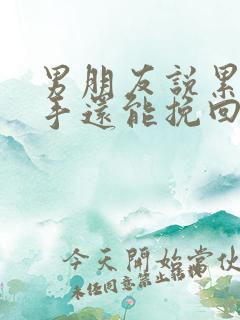 男朋友說累
手還能挽回
今天開始當伙
未经同意禁止转桃